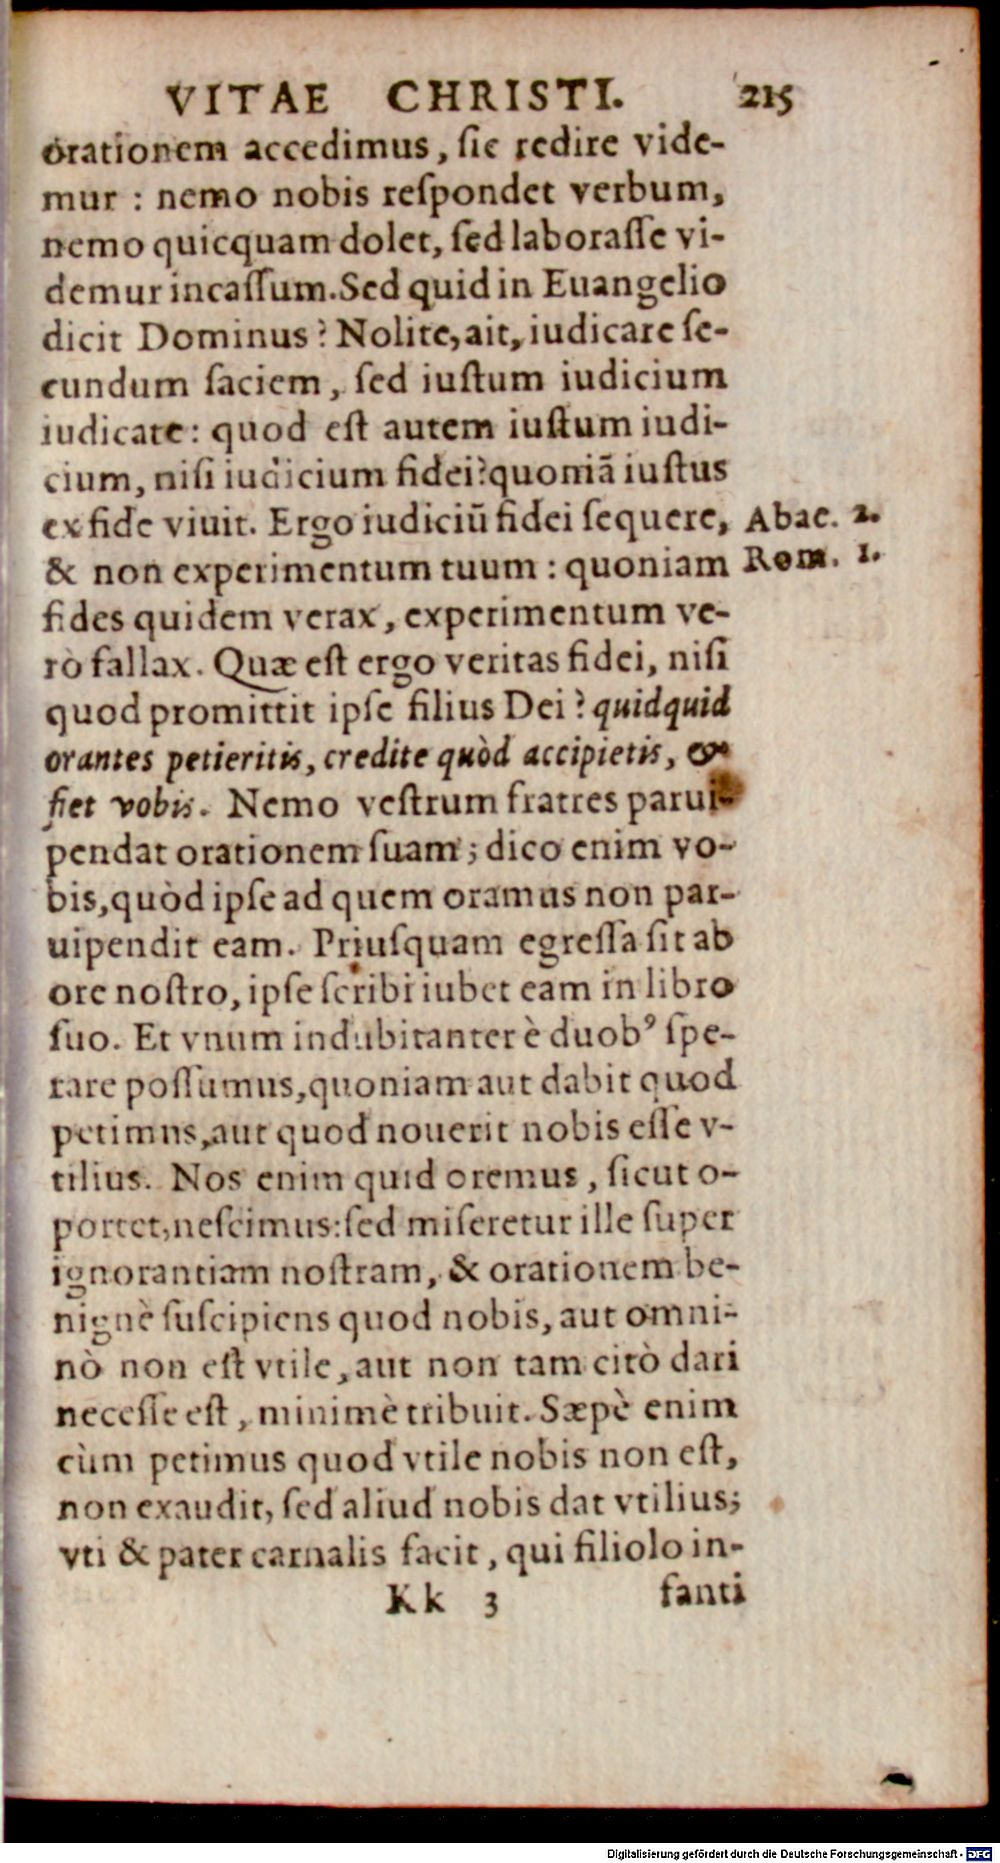 VITAE CHRISTI. 215
orationem accedimus, ſic redire vide-
mur : nemo nobis reſpondet verbum,
nemo quicquam dolet, ſed laboraſſe vi-
demur incaſſum. Sed quid in Euangelio
dicit Dominus? Nolite, ait, iudicare ſe-
cundum faciem, ſed iuſtum iudicium
iudicate: quod eſt autem iuſtum iudi-
cium, niſi iudicium fidei? quoniã iuſtus
ex fide viuit. Ergo iudiciũ fidei ſequere, Abac. 2.
& non experimentum tuum : quoniam Rom. 1.
fides quidem verax, experimentum ve-
rò fallax. Quæ eſt ergo veritas fidei, niſi
quod promittit ipſe filius Dei? quidquid
orantes petieritis, credite quòd accipietis, &
fiet vobis. Nemo veſtrum fratres parui-
pendat orationem ſuam; dico enim vo-
bis, quòd ipſe ad quem oramus non par-
uipendit eam. Priuſquam egreſſa ſit ab
ore noſtro, ipſe ſcribi iubet eam in libro
ſuo. Et vnum indubitanter è duobꝰ ſpe-
rare poſſumus, quoniam aut dabit quod
petimus, aut quod nouerit nobis eſſe v-
tilius. Nos enim quid oremus, ſicut o-
portet, neſcimus: ſed miſeretur ille ſuper
ignorantiam noſtram, & orationem be-
nignè ſuſcipiens quod nobis, aut omni-
nò non eſt vtile, aut non tam citò dari
neceſſe eſt, minimè tribuit. Sæpè enim
cùm petimus quod vtile nobis non eſt,
non exaudit, ſed aliud nobis dat vtilius;
vti & pater carnalis facit, qui filiolo in-
Kk 3 fanti
Digitalisierung gefördert durch die Deutsche Forschungsgemeinschaft - DFG